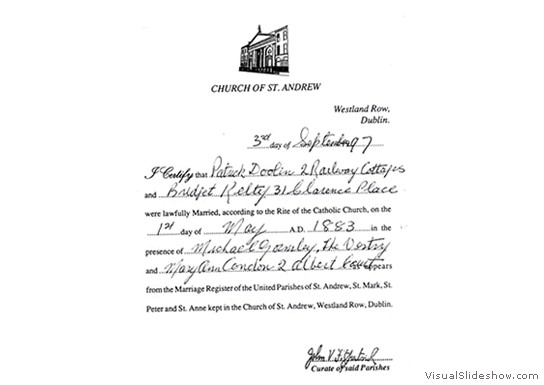 CHURCH OF ST. ANDREW
Westland Row,
Dublin.
3rd day of September 97
I Certify that Patrick Doolin 2 Railway Cottages
and Bridget Kelty 31 Clarence Place
were lawfully Married, according to the Rite of the Catholic Church, on the
1st day of May A.D. 1883 in the
presence of Michael Gormley, The Vestry
and Mary Ann Condon 2 Albert Court appears
from the Marriage Register of the United Parishes of St. Andrew, St. Mark, St.
Peter and St. Anne kept in the Church of St. Andrew, Westland Row, Dublin.
John V. Fitzpatrick
Curate of said Parishes
VisualSlideshow.com